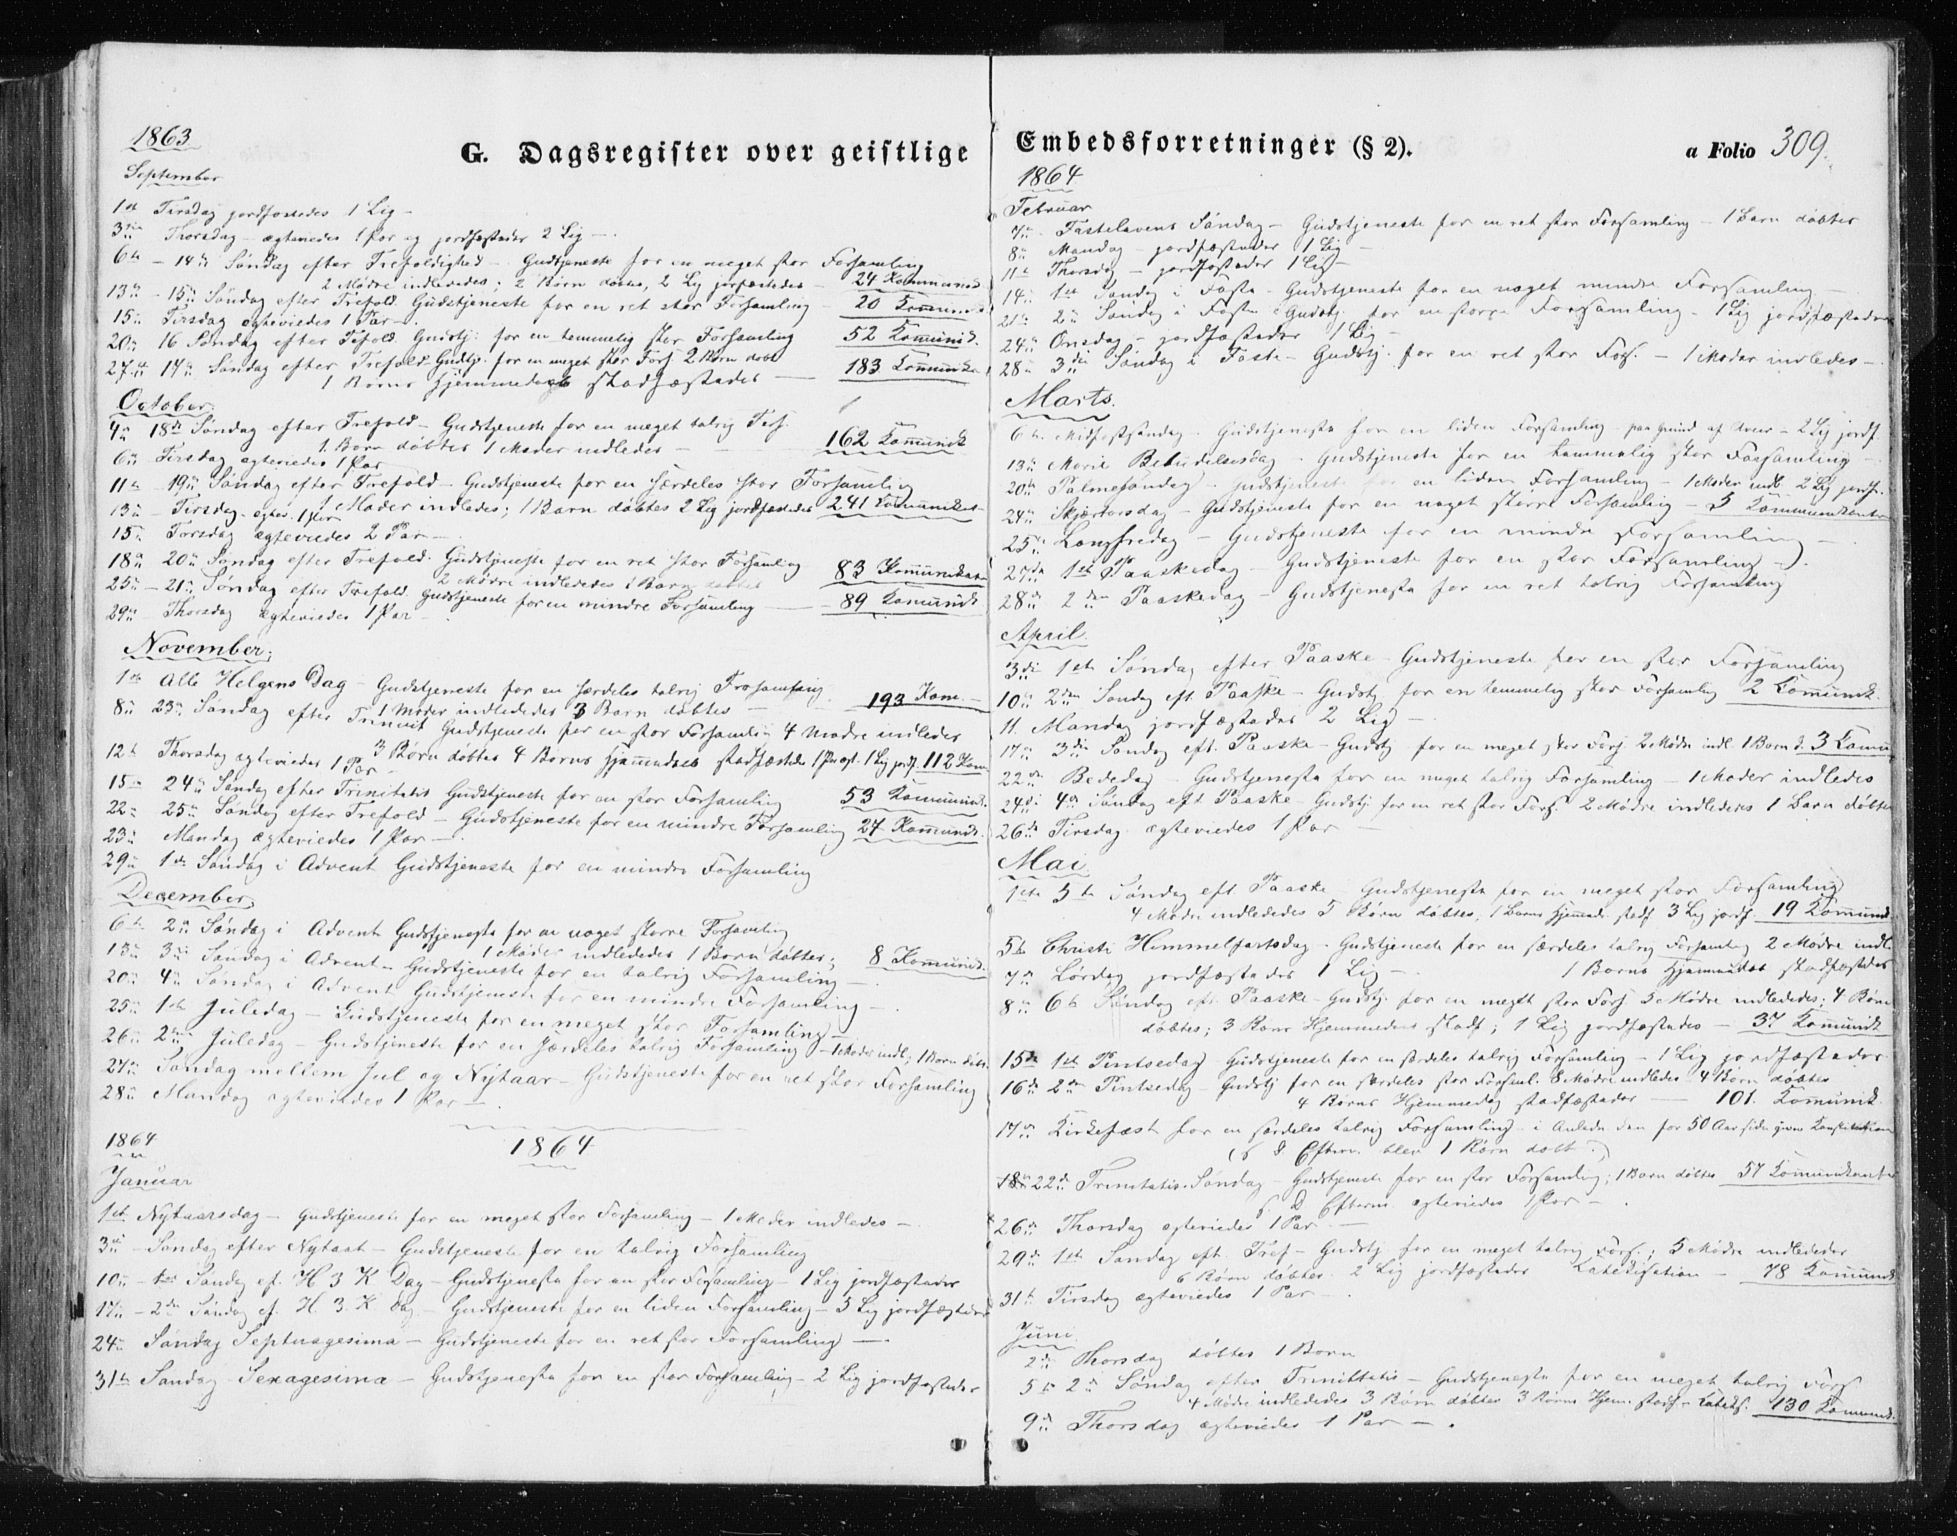 1863
G. Dagsregister over geistlige
September
1ste Tirsdag jordfæstedes 1 Lig –
3die Thorsdag – ægteviedes 1 Par og jordfæstedes 2 Lig –
6te – 14de Søndag efter Trefoldighed – Gudstjeneste for en meget stor Forsamling
2 Mødre indlededes; 2 Børn døbtes, 2 Lig jordfæstedes – 24 Kommunik.
13de – 15de Søndag efter Trefold. Gudstjeneste for en ret stor Forsamling 20 Kommunik.
15de Tirsdag ægteviedes 1 Par –
20de 16 Søndag efter Trefold. Gudstj. for en temmelig stor Forsamling 52 Komunik.
27de 17de Søndag efter Trefold. Gudtj. for en meget stor Fors. 2 Børn døbt
1 Børns Hjemmedaab stadfæstedes – 183 Komunik.
October.
4de 18de Søndag efter Trefold – Gudstjeneste for en meget talrig Fors.
1 Barn døbtes 1 Moder indledes – 162 Komunik
6te Tirsdag ægteviedes 1 Par
11te 19de Søndag efter Trefold – Gudstjeneste for en særdeles stor Forsamling
Moder indledes; 1 Barn døbtes 2 Lig jordfæstedes 241 Komunikant
13de – Tirsdag – egtev. 1 Par
15de Torsdag ægteviedes 2 Par –
18de 20de Søndag efter Trefold. Gudstjeneste for en ret stor Forsamling
2 Mødre indlededes 1 Barn døbtes 83 Komunikanter
25de – 21de Søndag efter Trefold. Gudstjeneste for en mindre Forsamling – 89 Komunik
29de Thorsdag ægteviedes 1 Par –
November;
1ste Alle Helgens Dag – Gudstjeneste for en særdeles talrig Frosamling
1 Moder indlededes 3 Barn døbtes – 193 Kom.
8de 23de Søndag efter Trinit Gudstjeneste for en stor Forsamlin 4 Mødre indledes
3 Børn døbtes 4 Børns Hjemmedaab stadfæstedes 1 Lig jordf. 112 Kom
12te Thorsdag ægteviedes 1 Par
15de 24de Søndag efter Trinitatis Gudstjeneste for en stor Forsamling 53 Komunik.
22de 25de Søndag efter Trefold – Gudstjeneste for en mindre Forsamling 27 Komunik.
23de Mandag ægteviedes 1 Par –
29de 1ste Søndag i Advent Gudstjeneste for en mindre Forsamling
December;
6te 2den Søndag i Advent Gudstjeneste for en noget større Forsamling
1 Moder indlededes 1 Barn døbtes; 8 Komunik.
13de 3die Søndag i Advent – Gudstjeneste for en talrig Forsamling –
20de 4de Søndag i Advent Gudstjeneste for en mindre Forsamling –
25de 1ste Juledag – Gudstjeneste for en meget stor Forsamling –
26de 2den Juledag – Gudstjeneste for en særdeles talrig Forsamling – 1 Moder indl; 1 Barn døbt.
27de Søndag mellem Jul og Nytaar – Gudstjeneste for en ret stor Forsamling
28de Mandag ægteviedes 1 Par –
1864
1864
Januar
1ste Nytaarsdag – Gudstjeneste for en meget stor Forsamling – 1 Moder indledes –
3die – Søndag efter Nytaar – Gudstjeneste for en talrig Forsamling
10de – 1ste Søndag ef. H 3 K Dag – Gudstjeneste for en stor Forsamling – 1 Lig jordfæstedes
17de – 2den Søndag ef. H. 3. K. Dag – Gudstjeneste for en liden Forsamling – 3 Lig jordfæstedes
24de Søndag Septuagesima – Gudstjeneste for en ret stor Forsamling –
31te Søndag Sexagesima – Gudstjeneste for en stor Forsamling – 2 Lig jordfæstedes
Embedsforretninger (§ 2).
a Folio 309.
1864
Februar
7de Fastelavens Søndag – Gudstjeneste for en ret stor Forsamling – 1 Barn døbtes
8de Mandag – jordfæstedes 1 Lig –
11te Thorsdag – jordfæstedes 1 Lig –
14de 1ste Søndag i Faste – Gudstjeneste for en noget mindre Forsamling –
21de 2den Søndag i Faste Gudstj. for en større Forsamling – 1 Lig jordfæstedes
24de Onsdag – jordfæstedes 1 Lig –
28de 3die Søndag i Faste – Gudstj. for en ret stor Fors. – 1 Moder indledes –
Marts.
6te Midfastsøndag Gudstjeneste for en liden Forsamling – paa Grund af Uveir – 2 Lig jordf.
13de Marie Bebudelsesdag – Gudstjeneste for en temmelig stor Forsamling –
20de Palmesøndag – Gudstjeneste for en liden Forsamling – 1 Moder indl. 2 Lig jordf.
24de Skjærtorsdag – Gudstjeneste for en noget større Forsamling – 5 Kommunikanter
25de Langfredag – Gudstjeneste for en mindre Forsamling –
27de 1ste Paaskedag – Gudstjeneste for en stor Forsamling –
28de 2den Paaskedag – Gudstjeneste for en ret talrig Forsamling
April.
3die 1ste Søndag efter Paaske – Gudstjeneste for en stor Forsamling
10de 2den Søndag eft. Paaske – Gudstj. for en temmelig stor Forsamling 2 Komunik.
11. Mandag jordfæstedes 2 Lig –
17de 3die Søndag eft. Paaske – Gudstj. for en meget stor Fors 2 Mødre indl. 1 Barn d. 3 Komu
22de Bededag – Gudstjeneste for en meget talrig Forsamling – 1 Moder indledes
24de 4de Søndag eft Paaske – Gudstj for en ret stor Fors. 2 Mødre indlededes 1 Barn døbtes
26de Tirsdag ægteviedes 1 Par –
Mai
1ste 5te Søndag eft Paaske – Gudstjeneste for en meget stor Forsamling
4 Mødre indlededes 5 Børn døbtes, 1 Barns Hjemd. stadf 3 Lig jordf 19 Komunik.
5te Christi Himmelfartsdag – Gudstjeneste for en særdeles talrig Forsamlig 2 Mødre indl.
1 Barns Hjemmedaab stadfæstedes
7de Lørdag jordfæstedes 1 Lig –
8de 6te Søndag eft. Paaske – Gudstj. for en meget stor Fors 5 Mødre indlededes; 4 Børn
døbtes; 3 Børns Hjemmedaab stadf; 1 Lig jordfæstedes – 37 Komunik
15de 1ste Pintsedag Gudstjeneste for en særdeles talrig Forsamling – 1 Lig jordfæstedes
16de 2den Pintsedag – Gudstj for en særdeles stor Forsaml. 8 Mødre indledes 4 Børn døbtes
4 Børns Hjemmedaab stadfæstedes – 101. Komunik.
17de Kirkefæst for en særdeles talrig Forsamling i Anledn. den for 50 Aar siden givne Konstitution
( Eftern. blev 1 Børn døbt.)
18de 22de Trinitatis-Søndag – Gudstjeneste for en stor Forsamling; 1 Barn døbtes 57 Komunikanter
s. D. Efterm ægteviedes 1 Par –
26de Thorsdag ægteviedes 1 Par –
29de 1ste Søndag eft. Tref – Gudstj. for en meget talrig Fors.; 5 Mødre indlededes
6 Børn døbtes. 2 Lig jordfæstedes Katekisation – 78 Komunik
31te Tirsdag ægteviedes 1 Par –
Juni.
2den Thorsdag døbtes 1 Barn
5te 2den Søndag efter Trinittatis – Gudstjeneste for en meget talrig Fors
4 Mødre indlededes 3 Børn døbtes 3 Børns Hjem. stadf – Katek. 130 Komunik.
9de Thorsdag ægteviedes 1 Par – .